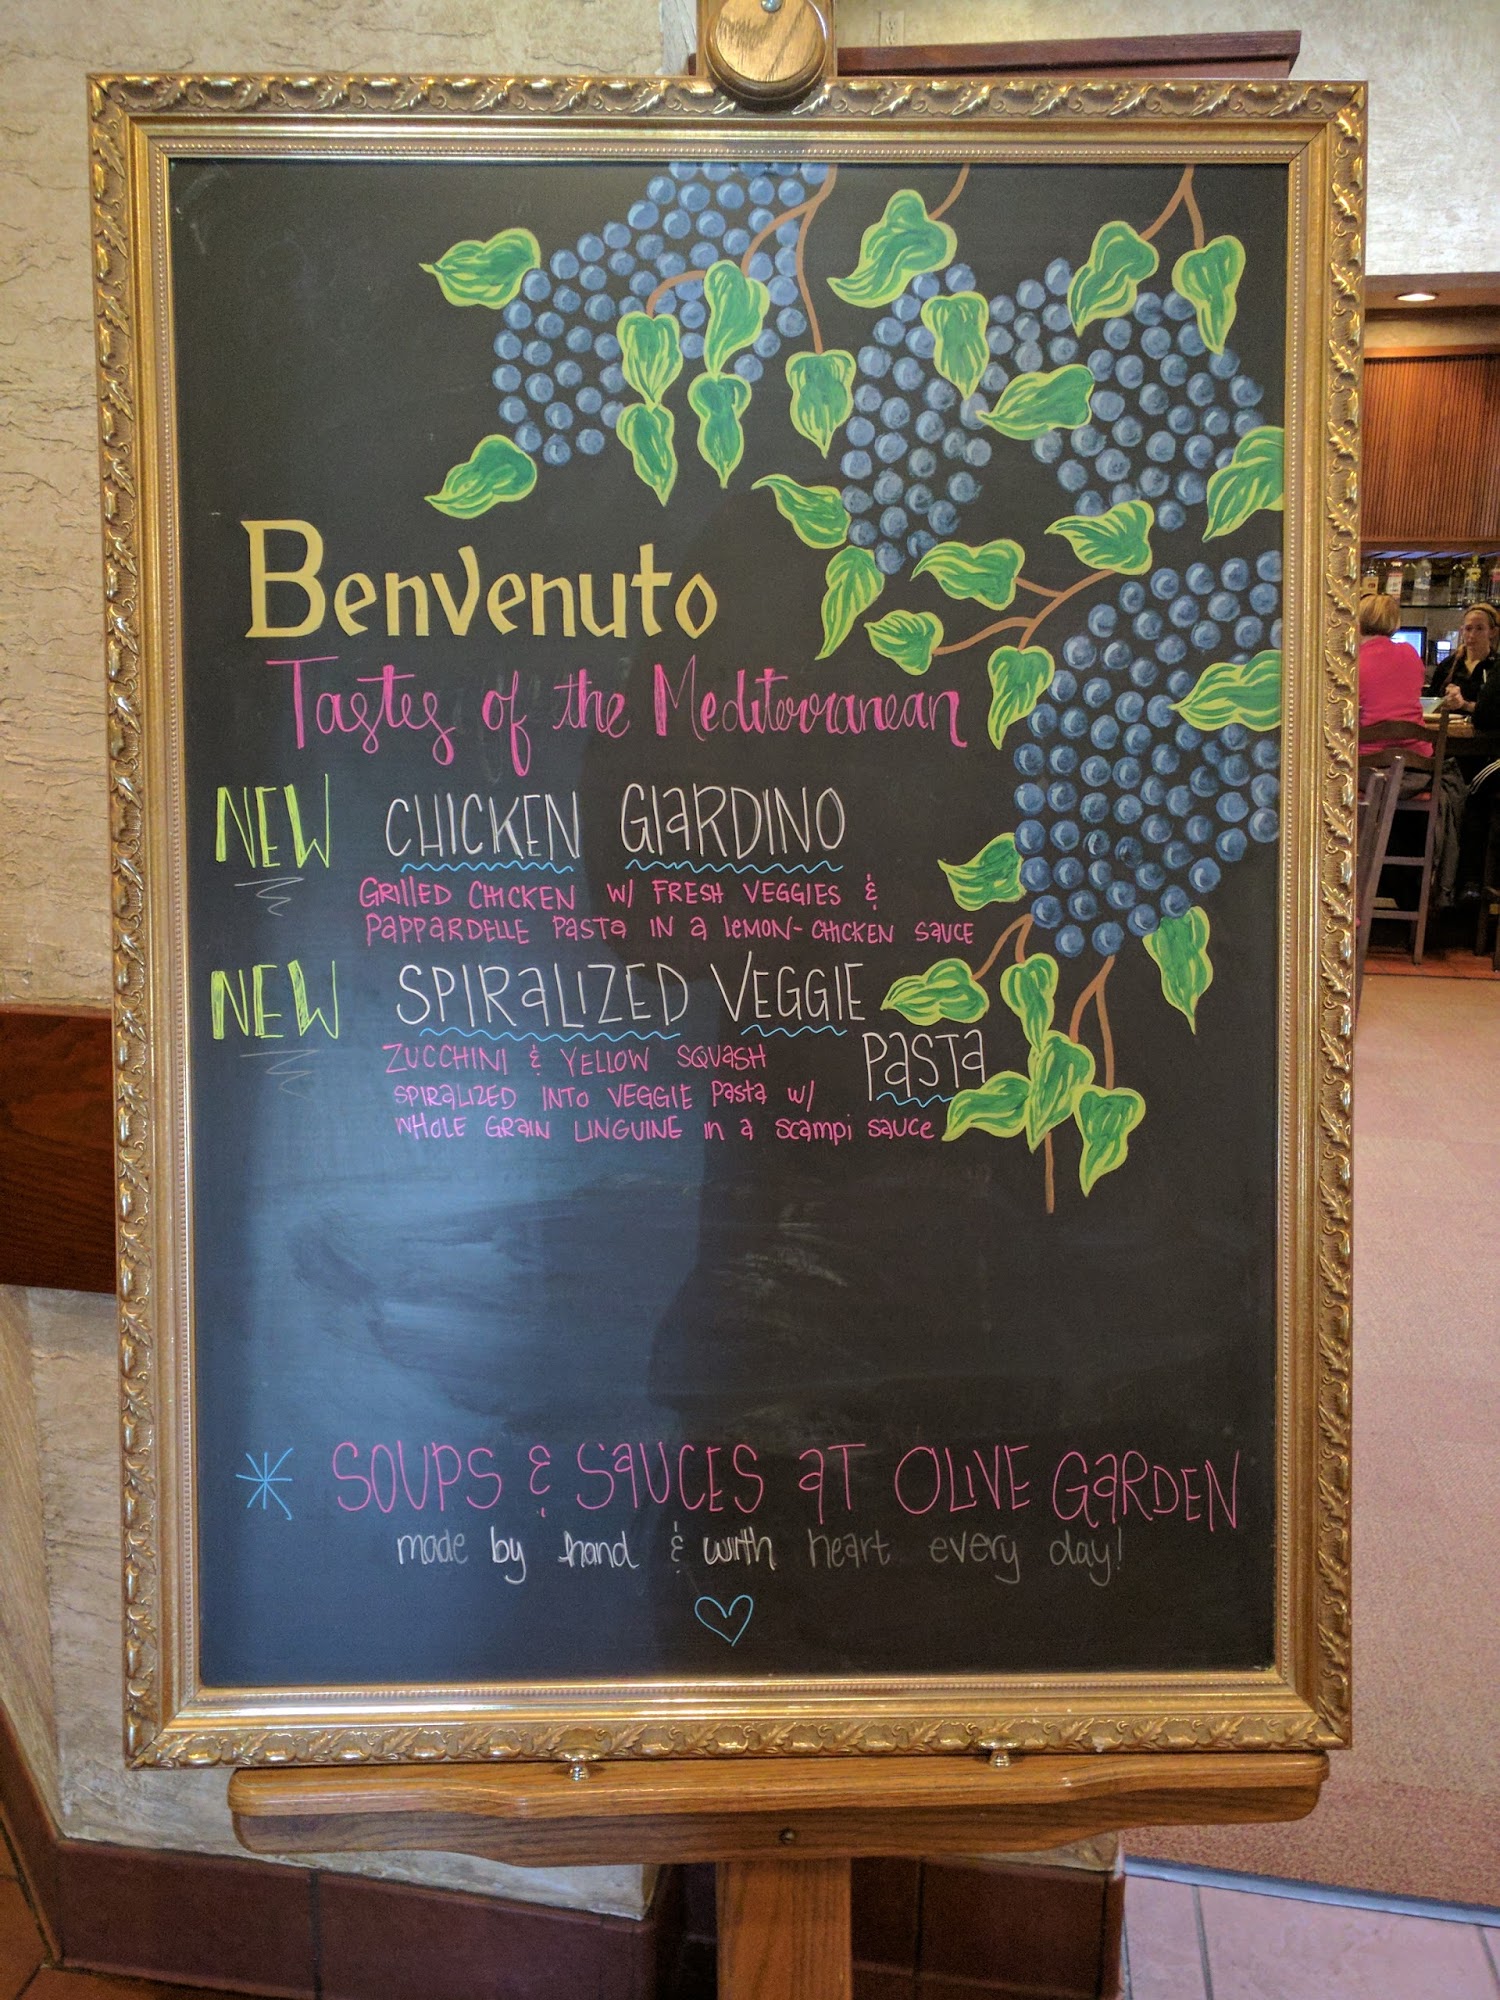 Benvenuto
Tastes of the Mediterranean
NEW CHICKEN GIaRDINO
GRIllED CHICKEN W/ FRESH VEGGIES &
PAPPARDELLE PaSTa IN a lEMON-CHICKEN SaUCE
NEW SPIRalIZED VEGGIE
PaSTa
ZUCCHINI & YELLOW SQUaSH
SPIRalIZED INTO VEGGIE Pasta W/
WHOLE GRaIN LINGUINE in a scampi sauce
* SOUPS & SaUCES aT OLIVE GaRDEN
made by hand & with heart every day!